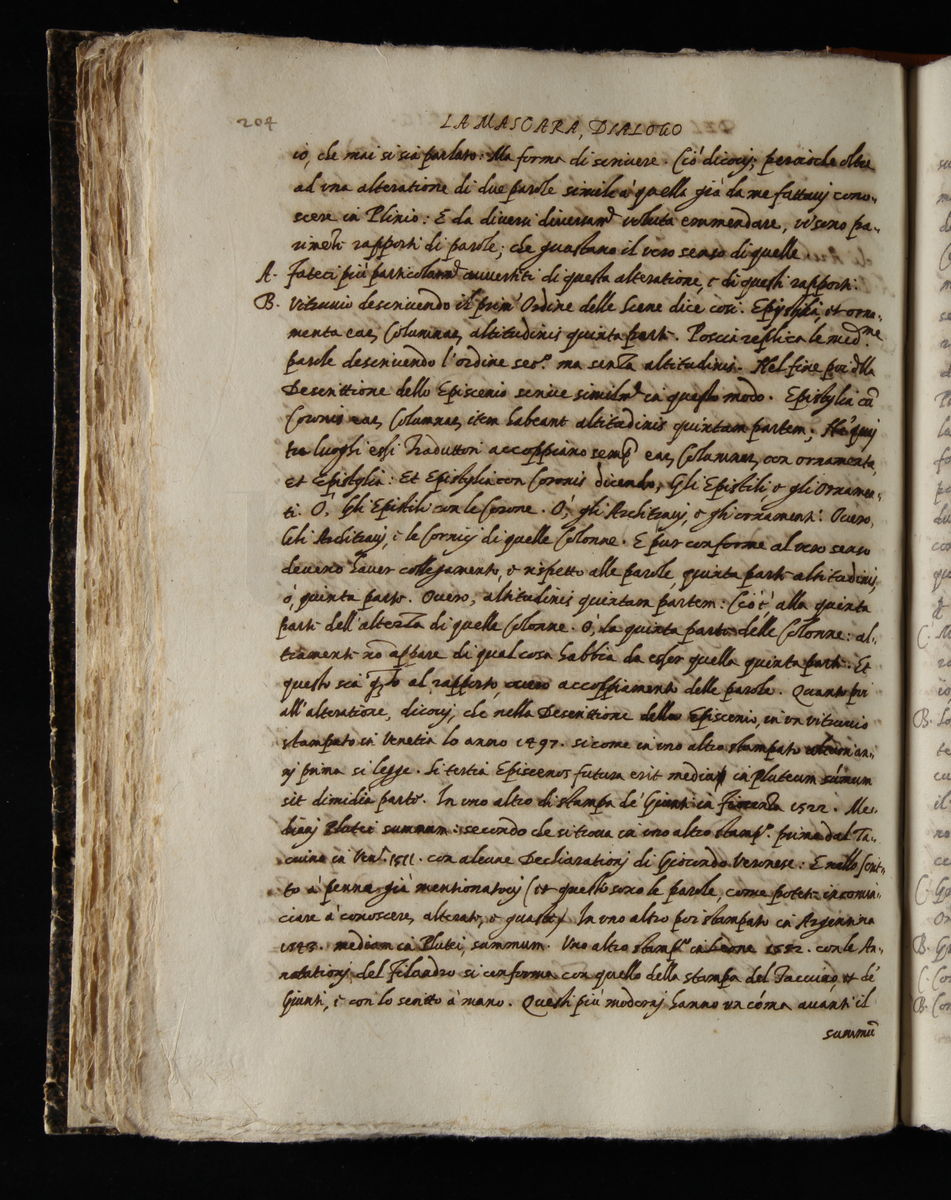 204
LA MASCARA, DIALOGO
io, che mai si sia parlato. Ma forma di scrivere. Ciò dicovj; percioche oltre
ad vna alteratione di due parole simile à quella già da me fattavj cono-
scere in Plinio: E da diversi diversamte voluta emmendare, vi sono pa-
rimenti rapporti di parole; che guastano il vero senso di quelle
A. Fateci più particolarmte avvertiti di questa alteratione, e di questi rapporti.
B. Vitruvio descrivendo il prim' Ordine delle Scene dice così. Epistylia, et orna-
menta eae, Columnae, altitudinis quinta parte. Poscia replica le medme
parole descrivendo l'ordine seco. ma senza altitudinis. Nel fine poi dlla
Descrittione dello Episcenio scrive similmte in questo modo. Epistylia cũ
Coronis eae, Columnae, item habeant altitudinis quintam partem; Ne' quaj
tre luoghi essi Traduttori accoppiano semp eae, Columnae, con ornamenta
et Epistylia: Et Epistylia con Coronis dicendo, Gli Epistili, e gli Ornamen-
ti. O, Gli Epistili con le Corone. O, gli Architravj, e gli ornamenti. Overo,
Gli Architravj, e le Cornicj di quelle Colonne. E pur conforme al vero senso
deveno haver collegamento, e rispetto alle parole quinta parte altitudinis,
ò, quinta parte. Overo, altitudinis quintam partem: Ciò è, alla quinta
parte dell'altezza di quelle Colonne. O, la quinta parte delle Colonne: al-
tramenti nõ appare di qual cosa habbia da esser quella quinta parte. Et
questo sia qto al rapporto, overo accoppiamento delle parole. Quanto poi
all'alteratione, dicovj, che nella Descrittione dello Episcenio, in vn vitruvio
stampato in Venetia lo anno 1497. si come in vno altro stampato alcuni an-
nj prima si legge. Si tertia Episcenos futura erit mediana in Pluteum sũmum
sit dimidia parte. In vno altro di stampa de' Giunti in Fiorenza 1522. Me-
dianj Plutei summum: secondo che si trova in vno altro stampo. prima dal Ta-
cuino in Vena. 1511. con alcune Declarationj di Giocondo Veronese: E nello scrit-
to à penna già mentionatovj (et queste sono le parole, come potete incomin-
ciare à conoscere, alterate, e guaste) In vno altro poi stampato in Argentina
1543. mediam in Plutei, summum. Vno altro stampo. in Leone 1552. con le An-
notationj del Filandro si conforma con quello della stampa del Taccuino, et de'
Giunti, e con lo scritto à mano. Questi più modernj hanno vn cóma avanti il
summũ